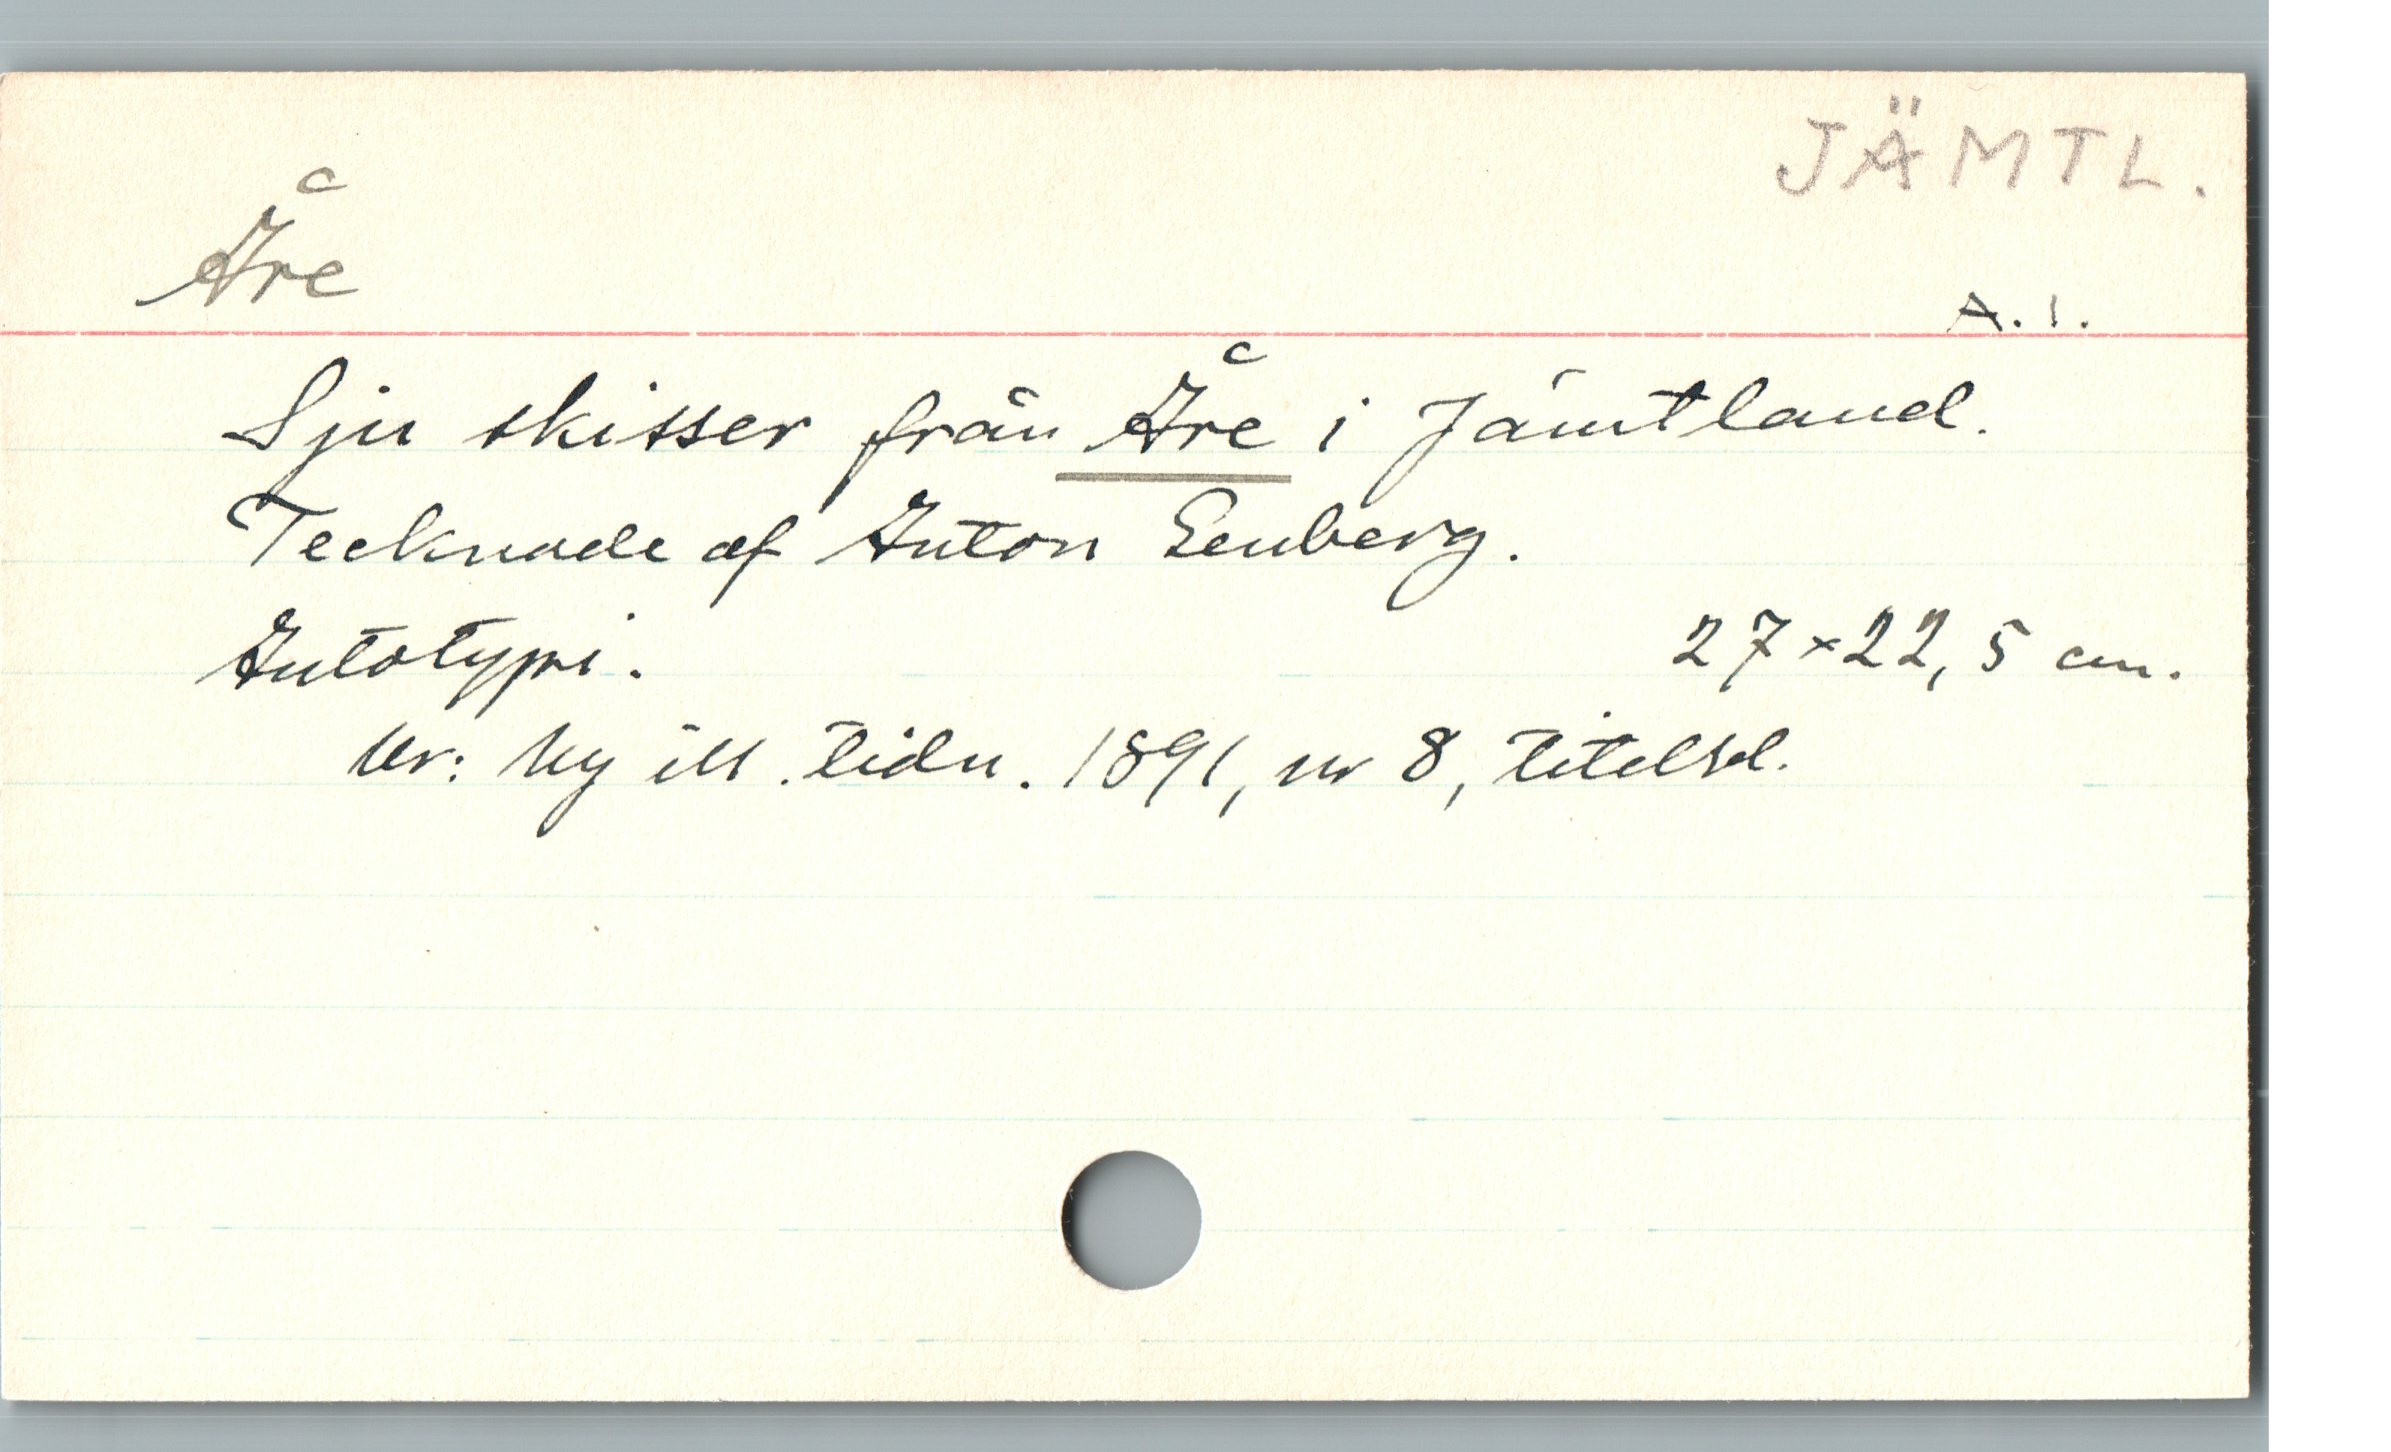 JÄMTL.
Åre
A. 1.
Sju skisser från Åre i Jämtland.
Tecknade af Anton Genberg.
Autotypi. 27×22,5 cm.
Ur: Ny ill. tidn. 1891, nr 8, titelsd.